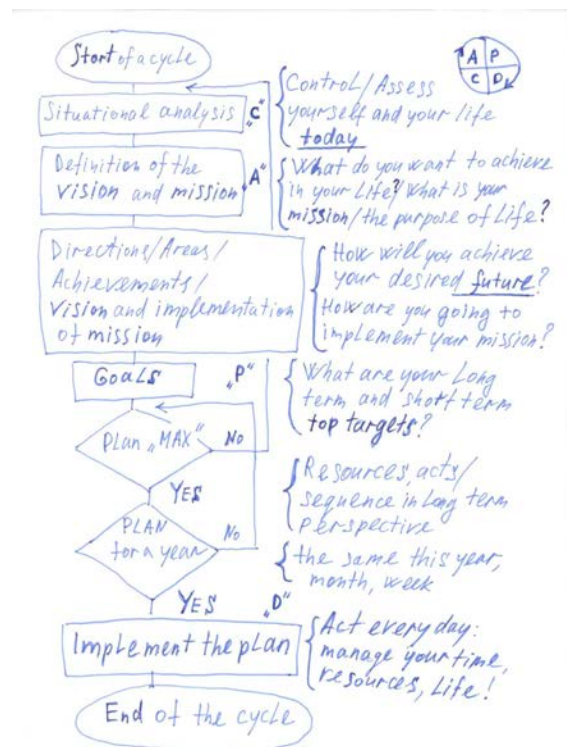 Start of a cycle
A P
C D
Situational analysis
„C“
Control/Assess
yourself and your life
today
Definition of the
vision and mission
„A“
What do you want to achieve
in your Life? What is your
mission/the purpose of Life?
Directions/Areas/
Achievements/
Vision and implementation
of mission
How will you achieve
your desired future?
How are you going to
implement your mission?
Goals
„P“
What are your Long
term and short term
top targets?
Plan „MAX“
No
YES
Resources, acts/
sequence in Long term
perspective
PLAN
for a year
No
the same this year,
month, week
YES
„D“
Implement the plan
Act every day:
manage your time,
resources, Life!
End of the cycle